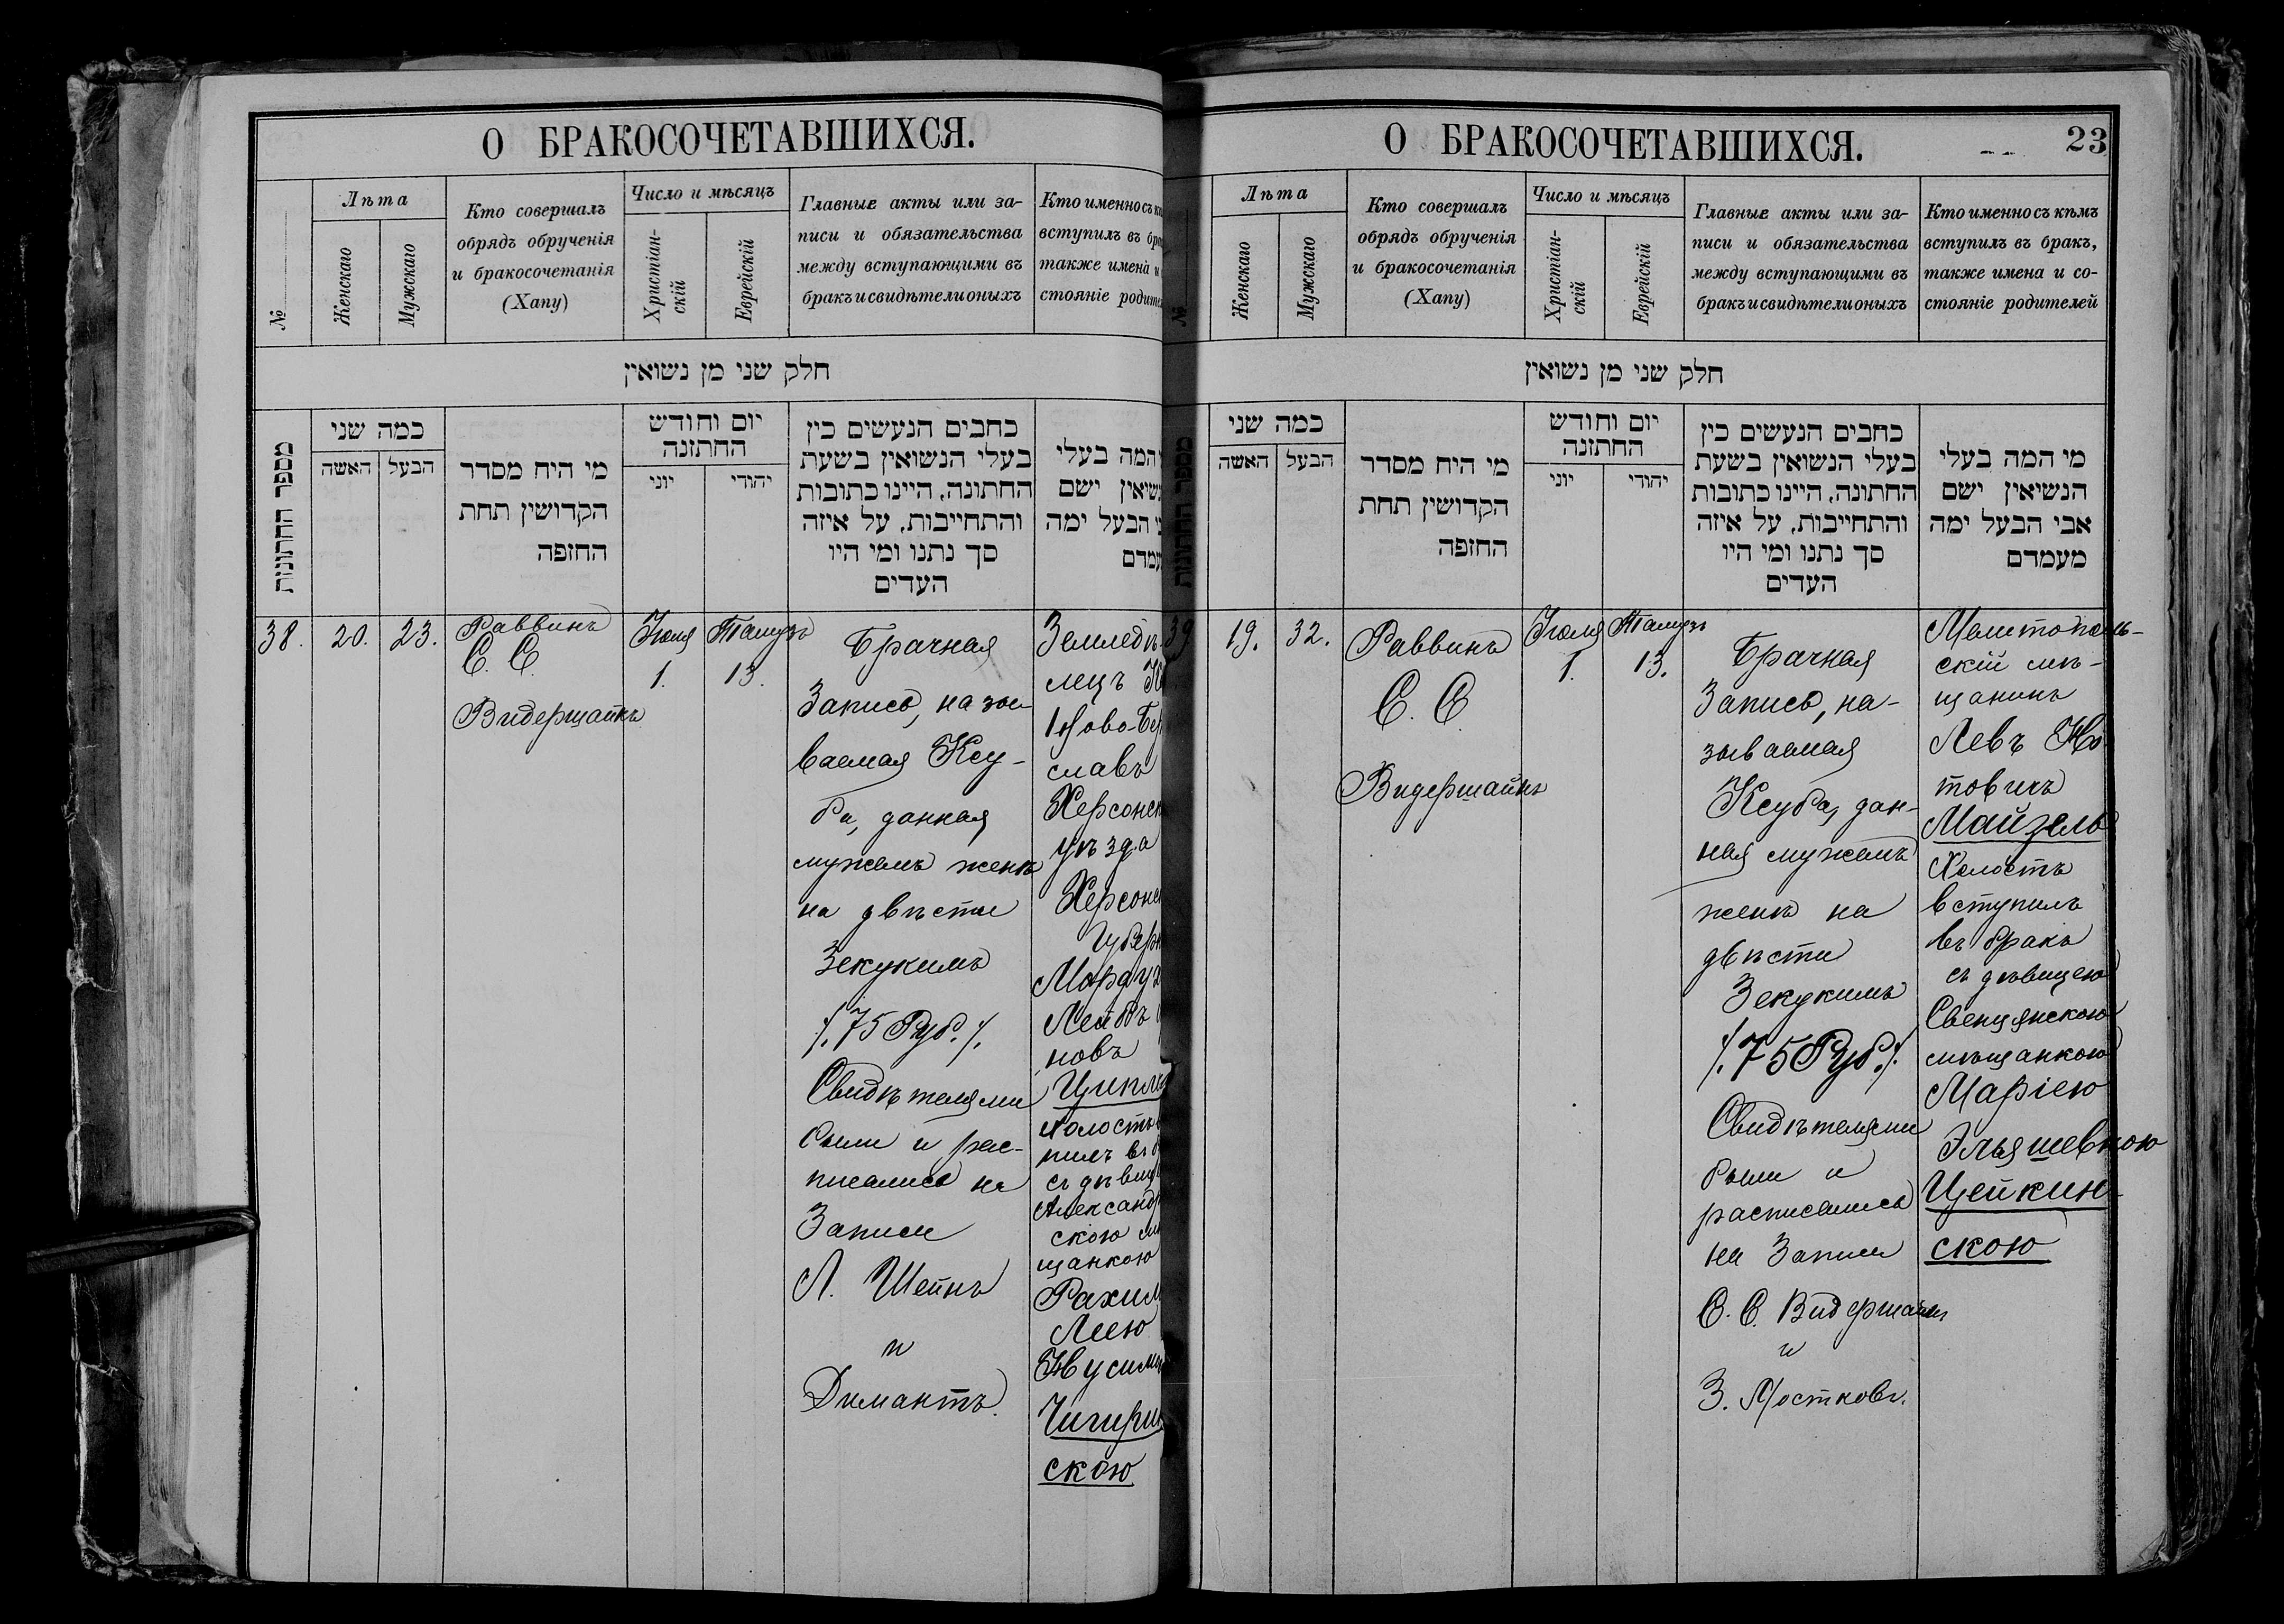 О БРАКОСОЧЕТАВШИХСЯ.
№
Лѣта
Женскаго
Мужскаго
Кто совершалъ
обрядъ обрученія
и бракосочетанія
(Хапу)
Число и мѣсяцъ
Христіан-
скій
Еврейскій
Главные акты или за-
писи и обязательства
между вступающими въ
бракъ и свидѣтели оныхъ
Кто именно съ
вступилъ въ
также имена и
стояніе
חלק שני מן נשואין
מספר החתונות
כמה שני
האשה
הבעל
מי היח מסדר
הקדושין תחת
החזפה
יום וחודש
החתזנה
יוני
יהודי
כחבים הנעשים כין
בעלי הנשואין בשעת
החתונה, היינו כתובות
והתחייבות, על איזה
סך נתנו ומי היו
העדים
המה בעלי
ישם
הבעל ימה
38.
20.
23.
Раввинъ
С. С.
Видершайнъ
Іюля
1.
Тамузъ
13.
Брачная
Запись, назы-
ваемая Ксу-
ба, данная
мужемъ женѣ
на двѣсти
Зекукимъ
/.75 Руб./.
Свидѣтелями
были и рас-
писались на
Записи
Л. Шейнъ
и
Димантъ.
Земледѣ
лецъ
Ново-Бер
славъ
Херсонск
уѣзда
Херсонс
Губерн
Лейбъ
новъ
холостъ
пилъ въ
съ дѣвиц
Александр
скою мѣ
щанкою
Рахил
Леею
Нусим
Чигирин
скою
О БРАКОСОЧЕТАВШИХСЯ.
23
№
Лѣта
Женскаго
Мужскаго
Кто совершалъ
обрядъ обрученія
и бракосочетанія
(Хапу)
Число и мѣсяцъ
Христіан-
скій
Еврейскій
Главные акты или за-
писи и обязательства
между вступающими въ
бракъ и свидѣтели оныхъ
Кто именно съ кѣмъ
вступилъ въ бракъ,
также имена и со-
стояніе родителей
חלק שני מן נשואין
מספר החתונות
כמה שני
האשה
הבעל
מי היח מסדר
הקדושין תחת
החזפה
יום וחודש
החתזנה
יוני
יהודי
כחבים הנעשים כין
בעלי הנשואין בשעת
החתונה, היינו כתובות
והתחייבות, על איזה
סך נתנו ומי היו
העדים
מי המה בעלי
הנשיאין ישם
אבי הבעל ימה
מעמדם
39
19.
32.
Раввинъ
С. С.
Видершайнъ
Іюля
1.
Тамузъ
13.
Брачная
Запись, на-
зываемая
Ксуба, дан-
ная мужемъ
женѣ на
двѣсти
Зекукимъ
/.75 Руб./.
Свидѣтелями
были и
расписались
на Записи
С. С. Видершайнъ
и
З. Мостковъ.
Мелитополь-
скій мѣ-
щанинъ
Левъ Но
товичъ
Майзель
Холостъ
вступилъ
въ бракъ
съ дѣвицею
Свенцянскою
мѣщанкою
Маріею
Эльяшевною
Цейкин-
скою